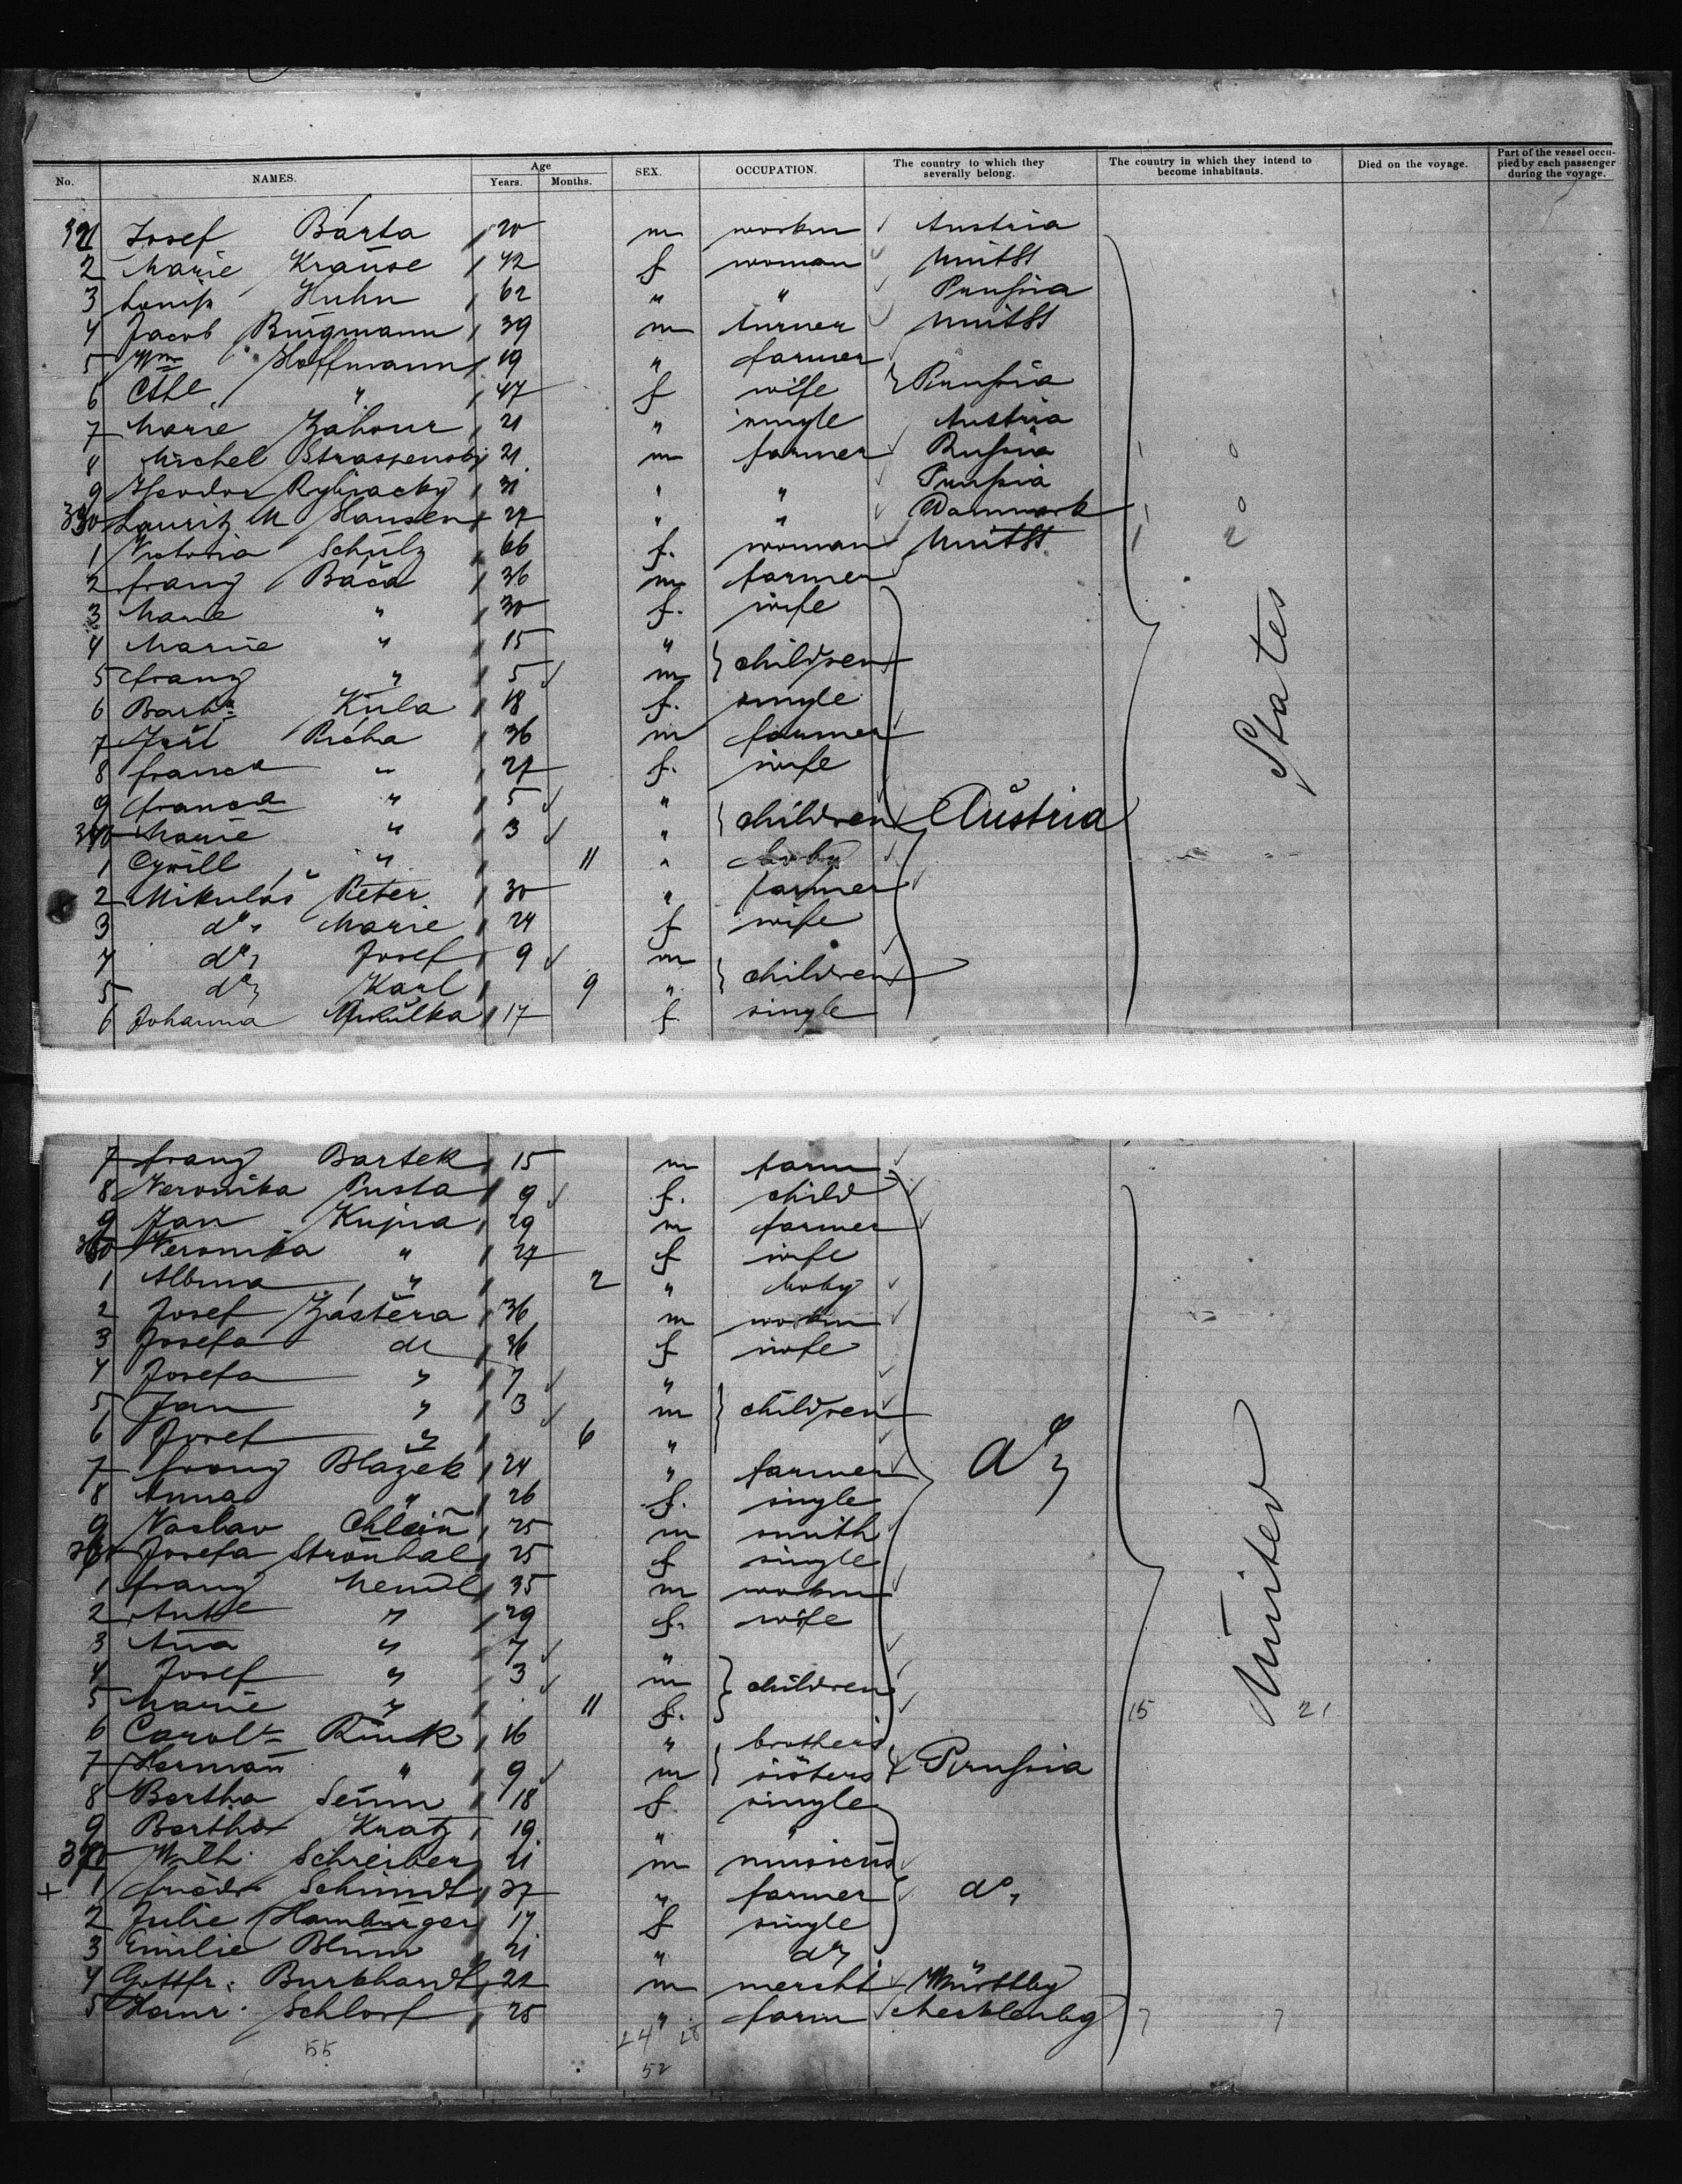 No. NAMES. Age Years. Months. SEX. OCCUPATION. The country to which they severally belong. The country in which they intend to become inhabitants. Died on the voyage. Part of the vessel occupied by each passenger during the voyage.
321 Josef Bárta 20 m workm Austria
2 Marie Krause 42 f woman UnitSt
3 Louise Huhn 62 " " Prussia
4 Jacob Burgmann 39 m turner UnitSt
5 Wm Hoffmann 19 " farmer
6 Cthe " 47 f wife } Prussia
7 Marie Zahour 21 " single Austria
8 Michel 21 m farmer Russia
9 Theodor 31 " " Prussia
330 Lauritz M Hansen 27 " " Danmark
1 Victoria Schulz 66 f. woman UnitSt.
2 Franz Báča 36 m farmer
3 Marie " 30 f. wife
4 Marie " 15 "
5 Franz " 5 m } children
6 Barba Kula 18 f. single
7 Richa 36 m farmer
8 Franca " 27 f. wife
9 Franca " 5 "
340 Marie " 3 " } children Austria
1 Cyrill " 11 " baby
2 Mikulás Peter 30 " farmer
3 do Marie 24 f wife
4 do Josef 9 m
5 do Karl 9 " } children
6 Johanna Mikulka 17 f. single
States
7 Franz Bartek 15 m farm
8 Veronika Pusta 9 f. child
9 Jan Kujna 29 m farmer
350 Veronika " 27 f wife
1 Albina " 2 " baby
2 Josef Zástěra 36 m workm
3 Josefa do 36 f wife
4 Josefa " 7 "
5 Jan " 3 m } children
6 Josef " 6 "
7 Franz Blažek 24 " farmer do
8 Anna " 26 f. single
9 Vaclav 25 m smith
360 Josefa Strouhal 25 f single
1 Franz Mendl 35 m workm
2 Ante " 29 f. wife
3 Ana " 7 "
4 Josef " 3 m } children
5 Marie " 11 f. 15 21
6 Carole Rink 16 " brothers
7 Herman " 9 m } sisters Prussia
8 Bertha 18 f. single
9 Bertha Kratz 19 " "
370 Wilh. Schreiber 21 m
+ 1 Friedr Schmidt 27 " farmer do
2 Julie Hamburger 17 f single
3 Emilie Blum 21 " do
4 Gottfr. Burkhardt 22 m mercht Württbg
5 Heinr. Schlorf 25 " farm Mecklenbg
United
55
52